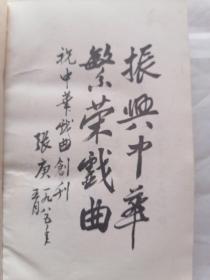 振興中華
繁荣戲曲
祝中華戲曲創刊
張庚
一九八五年
五月